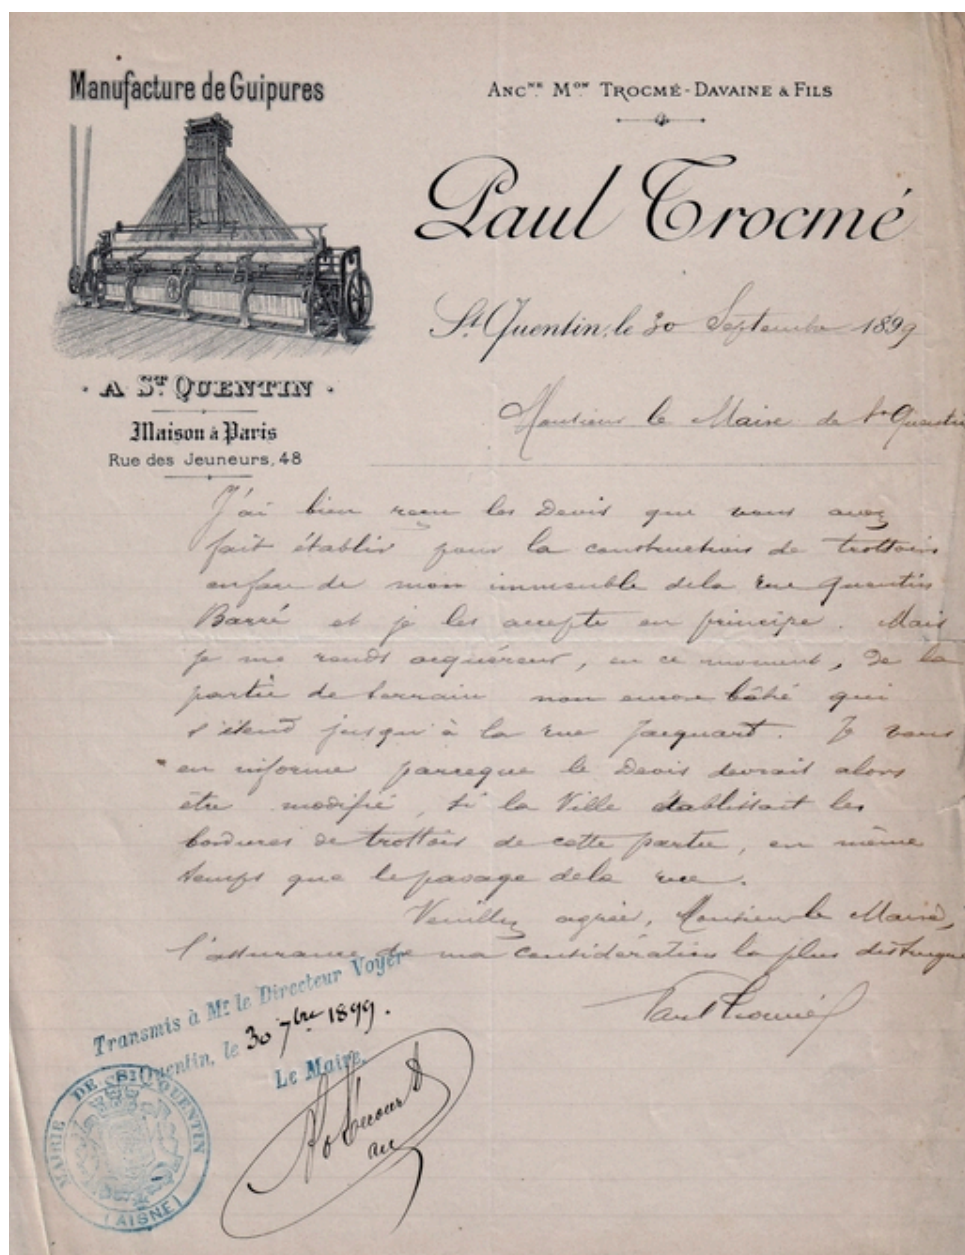 Manufacture de Guipures
A ST QUENTIN
Maison à Paris
Rue des Jeuneurs, 48
ANCNE MON TROCMÉ-DAVAINE & FILS
Paul Trocmé
St Quentin, le 30 Septembre 1899
Monsieur le Maire de St Quentin
J'ai bien reçu les Devis que vous avez
fait établir pour la construction de trottoirs
en face de mon immeuble de la rue Quentin
Barré et je les accepte en principe. Mais
je me rends acquéreur, en ce moment, de la
partie de terrain non encore bâtie qui
s'étend jusqu'à la rue Jacquart. Je vous
en informe parceque le Devis devrait alors
être modifié, si la Ville établissait les
bordures de trottoir de cette partie, en même
temps que le pavage de la rue.
Veuillez agréer, Monsieur le Maire,
l'assurance de ma considération la plus distinguée
Paul Trocmé
Transmis à Mr le Directeur Voyer
St Quentin, le 30 7bre 1899.
Le Maire,
MAIRIE DE ST QUENTIN
(AISNE)